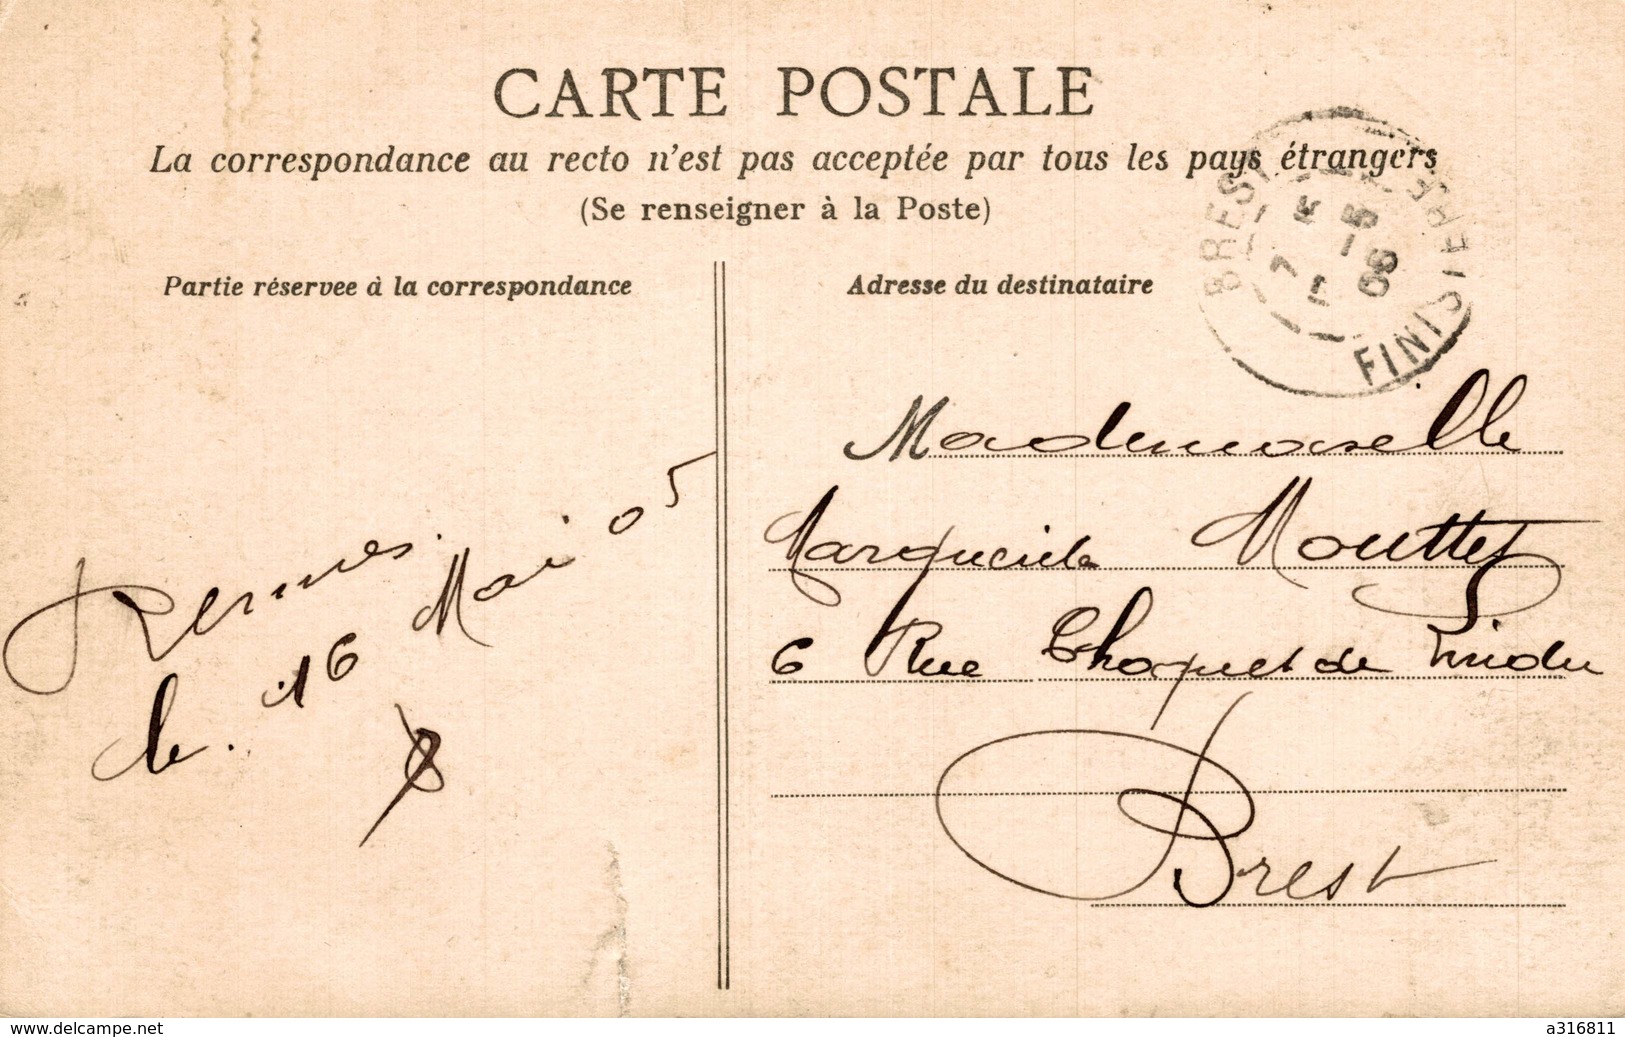 CARTE POSTALE
La correspondance au recto n'est pas acceptée par tous les pays étrangers
(Se renseigner à la Poste)
Partie réservee à la correspondance
Adresse du destinataire
BREST
FINISTERE
Rennes.
le. 16 Mai 05
Mademoiselle
Marguerite Mouttet
6 Rue Choquet de Lindu
Brest
www.delcampe.net
a316811